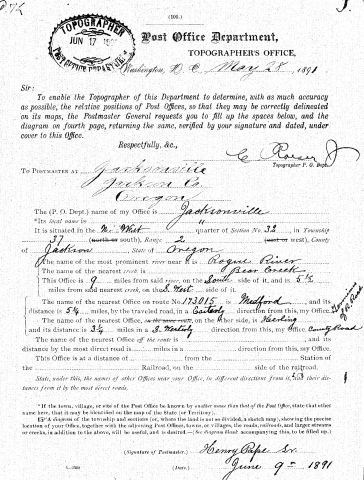 (101.)
TOPOGRAPHER
JUN 17
POST OFFICE DEPARTMENT
Post Office Department,
TOPOGRAPHER'S OFFICE,
Washington, D. C. May 28, 1891
Sir:
To enable the Topographer of this Department to determine, with as much accuracy
as possible, the relative positions of Post Offices, so that they may be correctly delineated
on its maps, the Postmaster General requests you to fill up the spaces below, and the
diagram on fourth page, returning the same, verified by your signature and dated, under
cover to this Office.
Respectfully, &c.,
C. Roeser Jr
Topographer P. O. Dept.
TO POSTMASTER AT Jacksonville
Jackson Co.
Oregon
The (P. O. Dept.) name of my Office is Jacksonville
*Its local name is "
It is situated in the N. West quarter of Section No. 32, in Township
37 (north or south), Range 2 (east or west), County
of Jackson, State of Oregon
The name of the most prominent river near it is Rogue River
The name of the nearest creek is Bear Creek
This Office is 9 miles from said river, on the South side of it, and is 5½
miles from said nearest creek, on the S. West side of it.
The name of the nearest Office on route No. 173015 is Medford, and its
distance is 5¼ miles, by the traveled road, in a Easterly direction from this, my Office.
The name of the nearest Office, on the same route, on the other side, is
and its distance is 3¼ miles in a S. Westerly direction from this, my Office. County Road
The name of the nearest Office off the route is , and its
distance by the most direct road is miles in a direction from this, my Office.
This Office is at a distance of from the Station of
the Railroad, on the side of the railroad.
State, under this, the names of all other Offices near your Office, in different directions from it, and their dis-
tances from it by the most direct roads.
* If the town, village, or site of the Post Office, be known by another name than that of the Post Office, state that other
name here, that it may be identified on the map of the State (or Territory).
A diagram of the township and sections (or, where the land is not divided, a sketch map), showing the precise
location of your Office, together with the adjoining Post Offices, towns, or villages, the roads, railroads, and larger streams
or creeks, in addition to the above, will be useful, and is desired.—(See diagram blank accompanying this, to be filled up.)
(Signature of Postmaster.) Henry Pape Sr.
(Date.) June 9th 1891